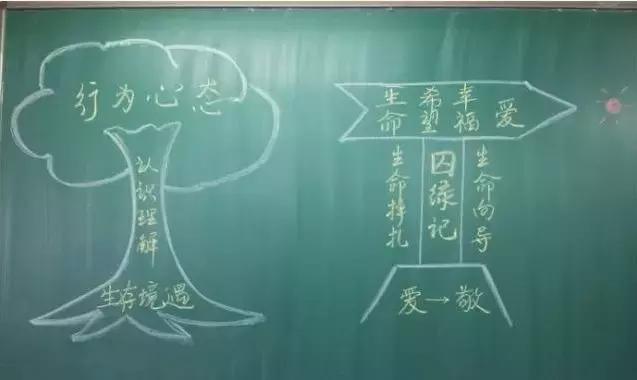 行为心态
认识理解
生存境遇
生命
希望
幸福
爱
生命挣扎
囚绿记
生命向导
爱→敬